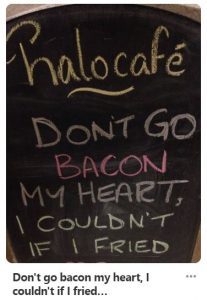 halocafé
DONT GO
BACON
MY HEART,
I COULDN'T
IF I FRIED
Don't go bacon my heart, I
couldn't if I fried...